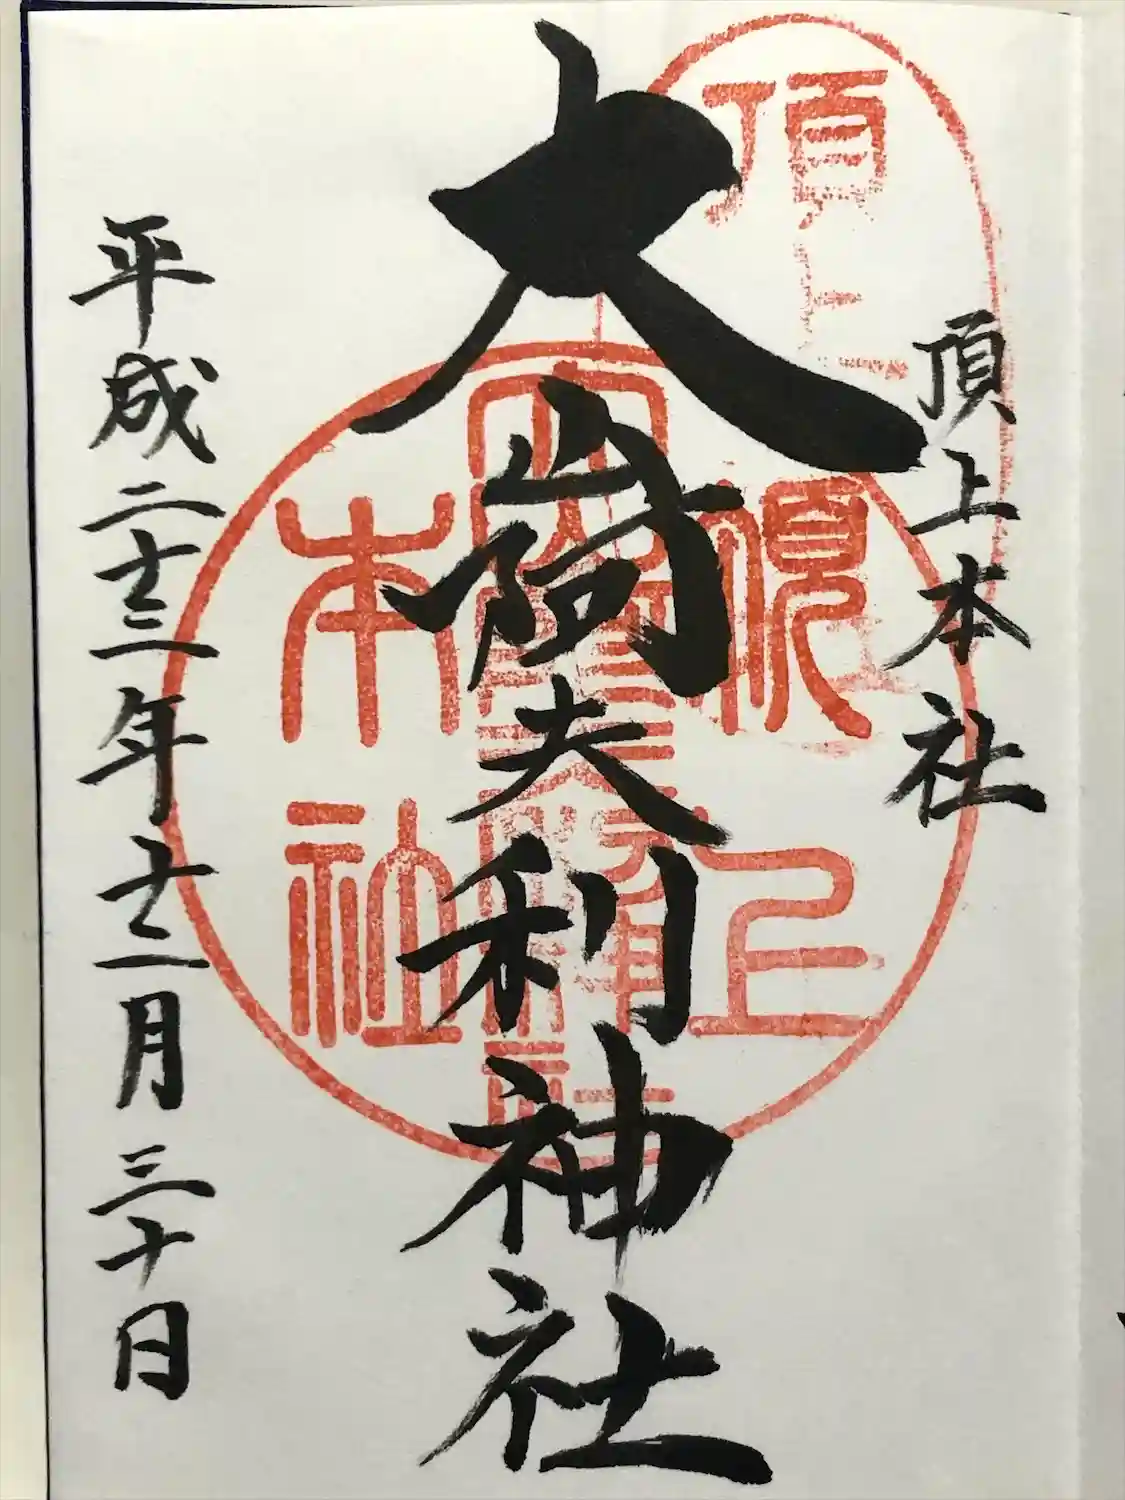 頂上
頂上本社
頂上本社
大山阿夫利神社
平成二十三年十二月三十日